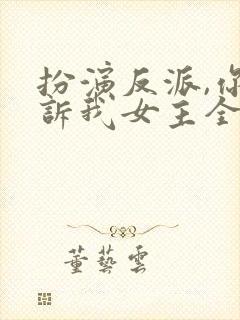 扮演反派,你
訴我女主全
董藝雲